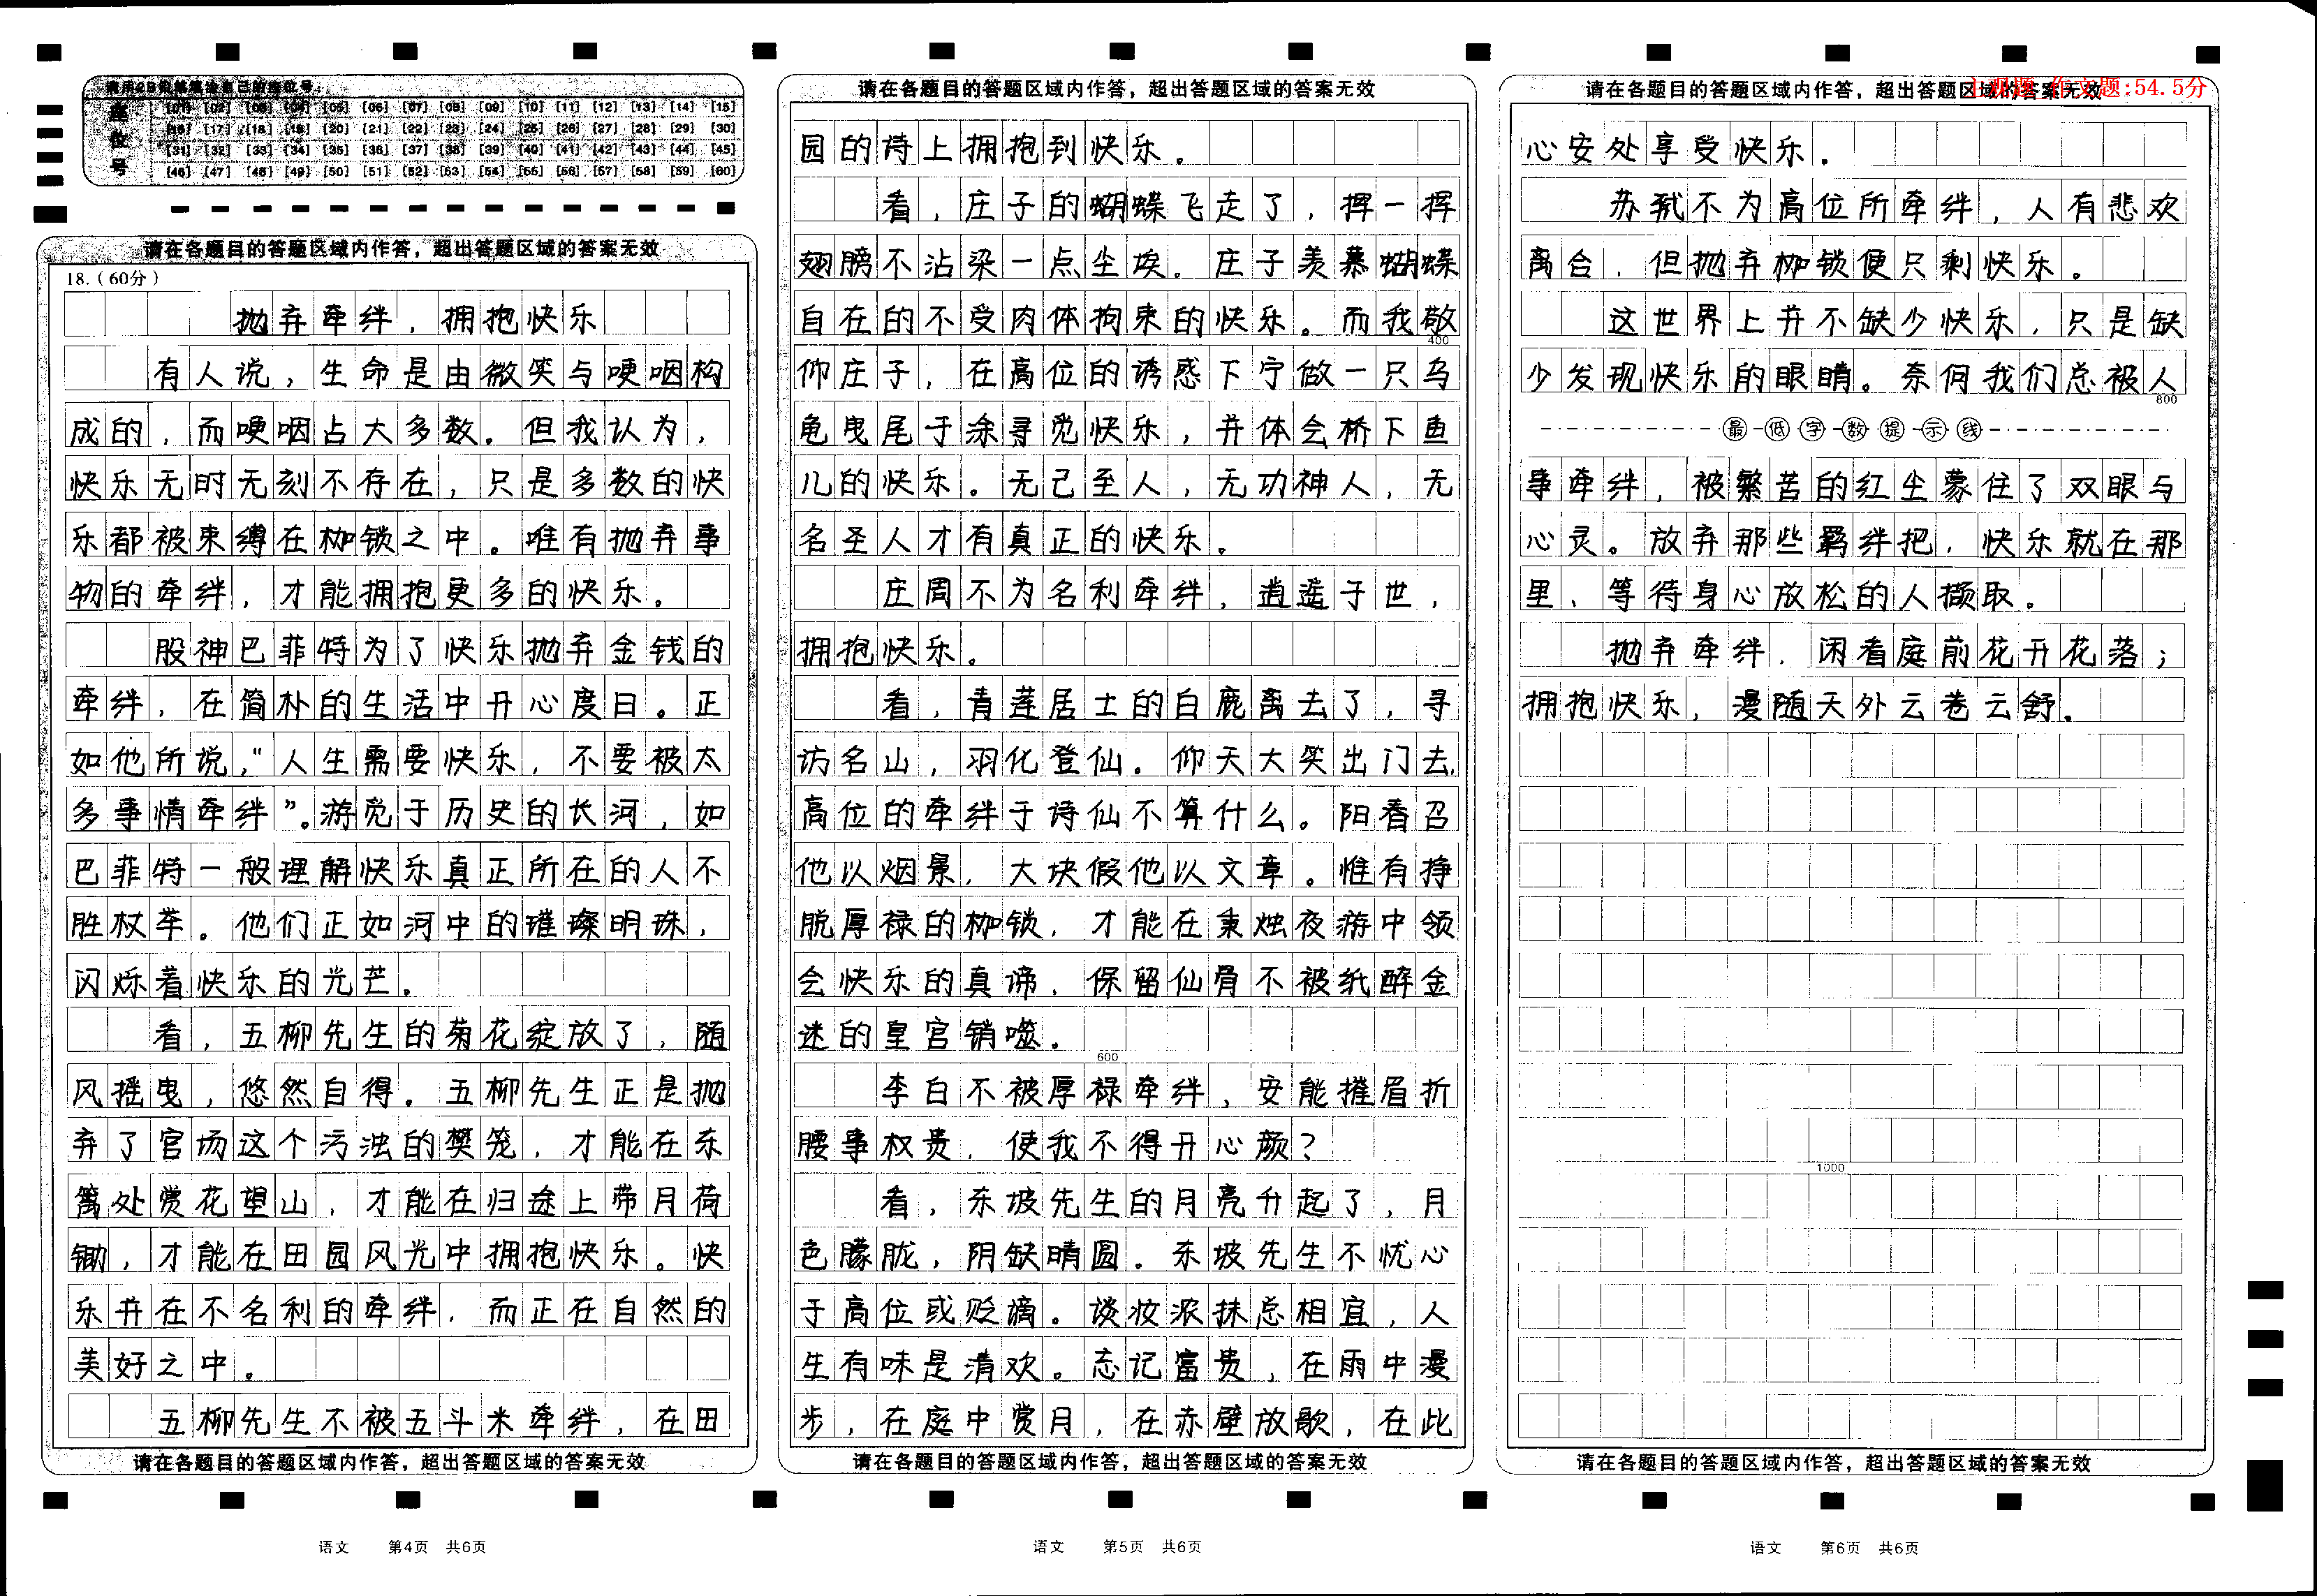 请用2B铅笔填涂自己的座位号:
座位号
[01] [02] [03] [04] [05] [06] [07] [08] [09] [10] [11] [12] [13] [14] [15]
[16] [17] [18] [19] [20] [21] [22] [23] [24] [25] [26] [27] [28] [29] [30]
[31] [32] [33] [34] [35] [36] [37] [38] [39] [40] [41] [42] [43] [44] [45]
[46] [47] [48] [49] [50] [51] [52] [53] [54] [55] [56] [57] [58] [59] [60]
请在各题目的答题区域内作答，超出答题区域的答案无效
18.（60分）
抛弃牵绊，拥抱快乐
有人说，生命是由微笑与哽咽构
成的，而哽咽占大多数。但我认为，
快乐无时无刻不存在，只是多数的快
乐都被束缚在枷锁之中。唯有抛弃事
物的牵绊，才能拥抱更多的快乐。
股神巴菲特为了快乐抛弃金钱的
牵绊，在简朴的生活中开心度日。正
如他所说，“人生需要快乐，不要被太
多事情牵绊”。游览于历史的长河，如
巴菲特一般理解快乐真正所在的人不
胜枚举。他们正如河中的璀璨明珠，
闪烁着快乐的光芒。
看，五柳先生的菊花绽放了，随
风摇曳，悠然自得。五柳先生正是抛
弃了官场这个污浊的樊笼，才能在东
篱处赏花望山，才能在归途上带月荷
锄，才能在田园风光中拥抱快乐。快
乐并在不名利的牵绊，而正在自然的
美好之中。
五柳先生不被五斗米牵绊，在田
请在各题目的答题区域内作答，超出答题区域的答案无效
语文 第4页 共6页
请在各题目的答题区域内作答，超出答题区域的答案无效
园的诗上拥抱到快乐。
看，庄子的蝴蝶飞走了，挥一挥
翅膀不沾染一点尘埃。庄子羡慕蝴蝶
自在的不受肉体拘束的快乐。而我敬
400
仰庄子，在高位的诱惑下宁做一只乌
龟曳尾于涂寻觅快乐，并体会桥下鱼
儿的快乐。无己至人，无功神人，无
名圣人才有真正的快乐。
庄周不为名利牵绊，逍遥于世，
拥抱快乐。
看，青莲居士的白鹿离去了，寻
访名山，羽化登仙。仰天大笑出门去，
高位的牵绊于诗仙不算什么。阳春召
他以烟景，大块假他以文章。惟有挣
脱厚禄的枷锁，才能在秉烛夜游中领
会快乐的真谛，保留仙骨不被纸醉金
迷的皇宫销噬。
600
李白不被厚禄牵绊，安能摧眉折
腰事权贵，使我不得开心颜？
看，东坡先生的月亮升起了，月
色朦胧，阴缺晴圆。东坡先生不忧心
于高位或贬谪。淡妆浓抹总相宜，人
生有味是清欢。忘记富贵，在雨中漫
步，在庭中赏月，在赤壁放歌，在此
请在各题目的答题区域内作答，超出答题区域的答案无效
语文 第5页 共6页
请在各题目的答题区域内作答，超出答题区域的答案无效
主观题_作文题:54.5分
心安处享受快乐。
苏轼不为高位所牵绊，人有悲欢
离合，但抛弃枷锁便只剩快乐。
这世界上并不缺少快乐，只是缺
少发现快乐的眼睛。奈何我们总被人
800
最低字数提示线
事牵绊，被繁苦的红尘蒙住了双眼与
心灵。放弃那些羁绊把，快乐就在那
里、等待身心放松的人撷取。
抛弃牵绊，闲看庭前花开花落；
拥抱快乐，漫随天外云卷云舒。
1000
请在各题目的答题区域内作答，超出答题区域的答案无效
语文 第6页 共6页